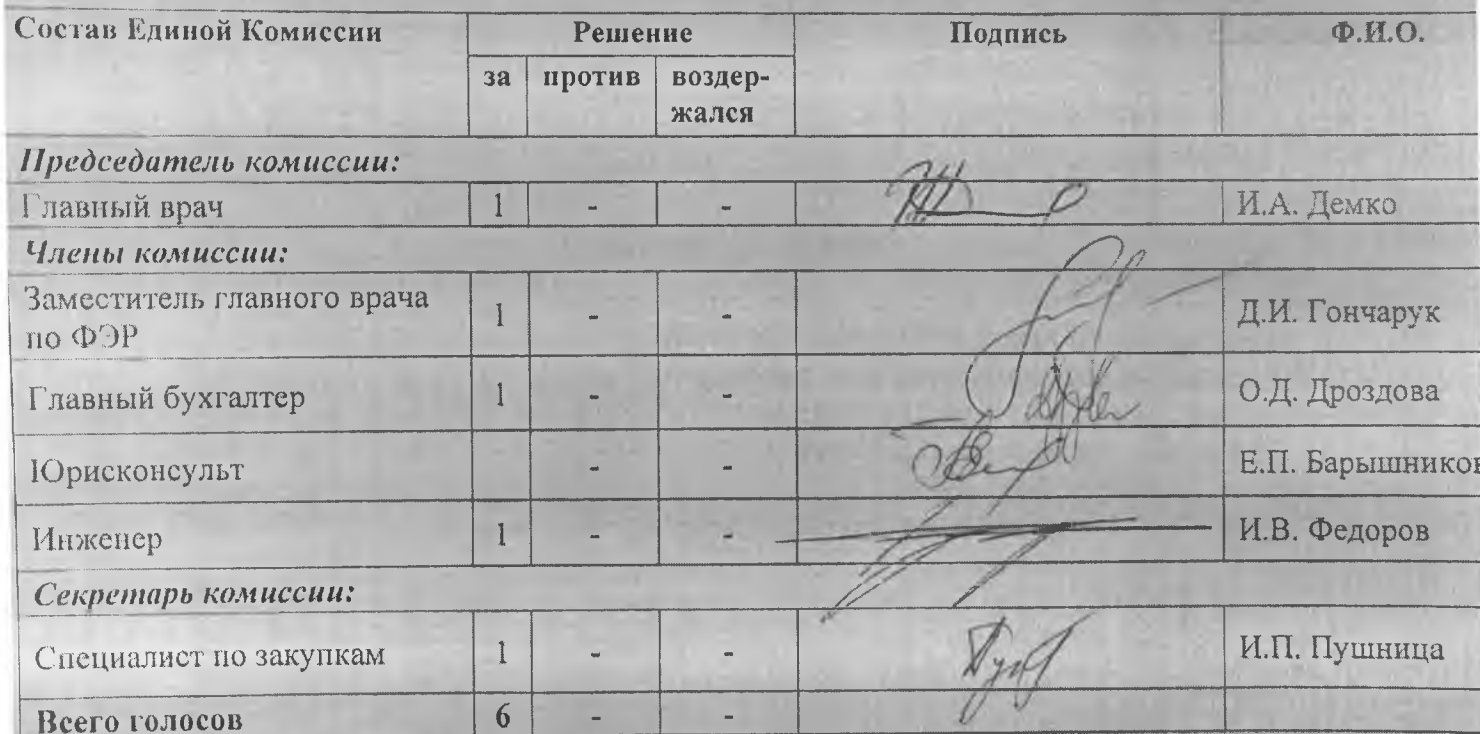 Состав Единой Комиссии Решение Подпись Ф.И.О.
за против воздер-
жался
Председатель комиссии:
Главный врач 1 - - И.А. Демко
Члены комиссии:
Заместитель главного врача
по ФЭР 1 - - Д.И. Гончарук
Главный бухгалтер 1 - - О.Д. Дроздова
Юрисконсульт - - Е.П. Барышников
Инженер 1 - - И.В. Федоров
Секретарь комиссии:
Специалист по закупкам 1 - - И.П. Пушница
Всего голосов 6 - -